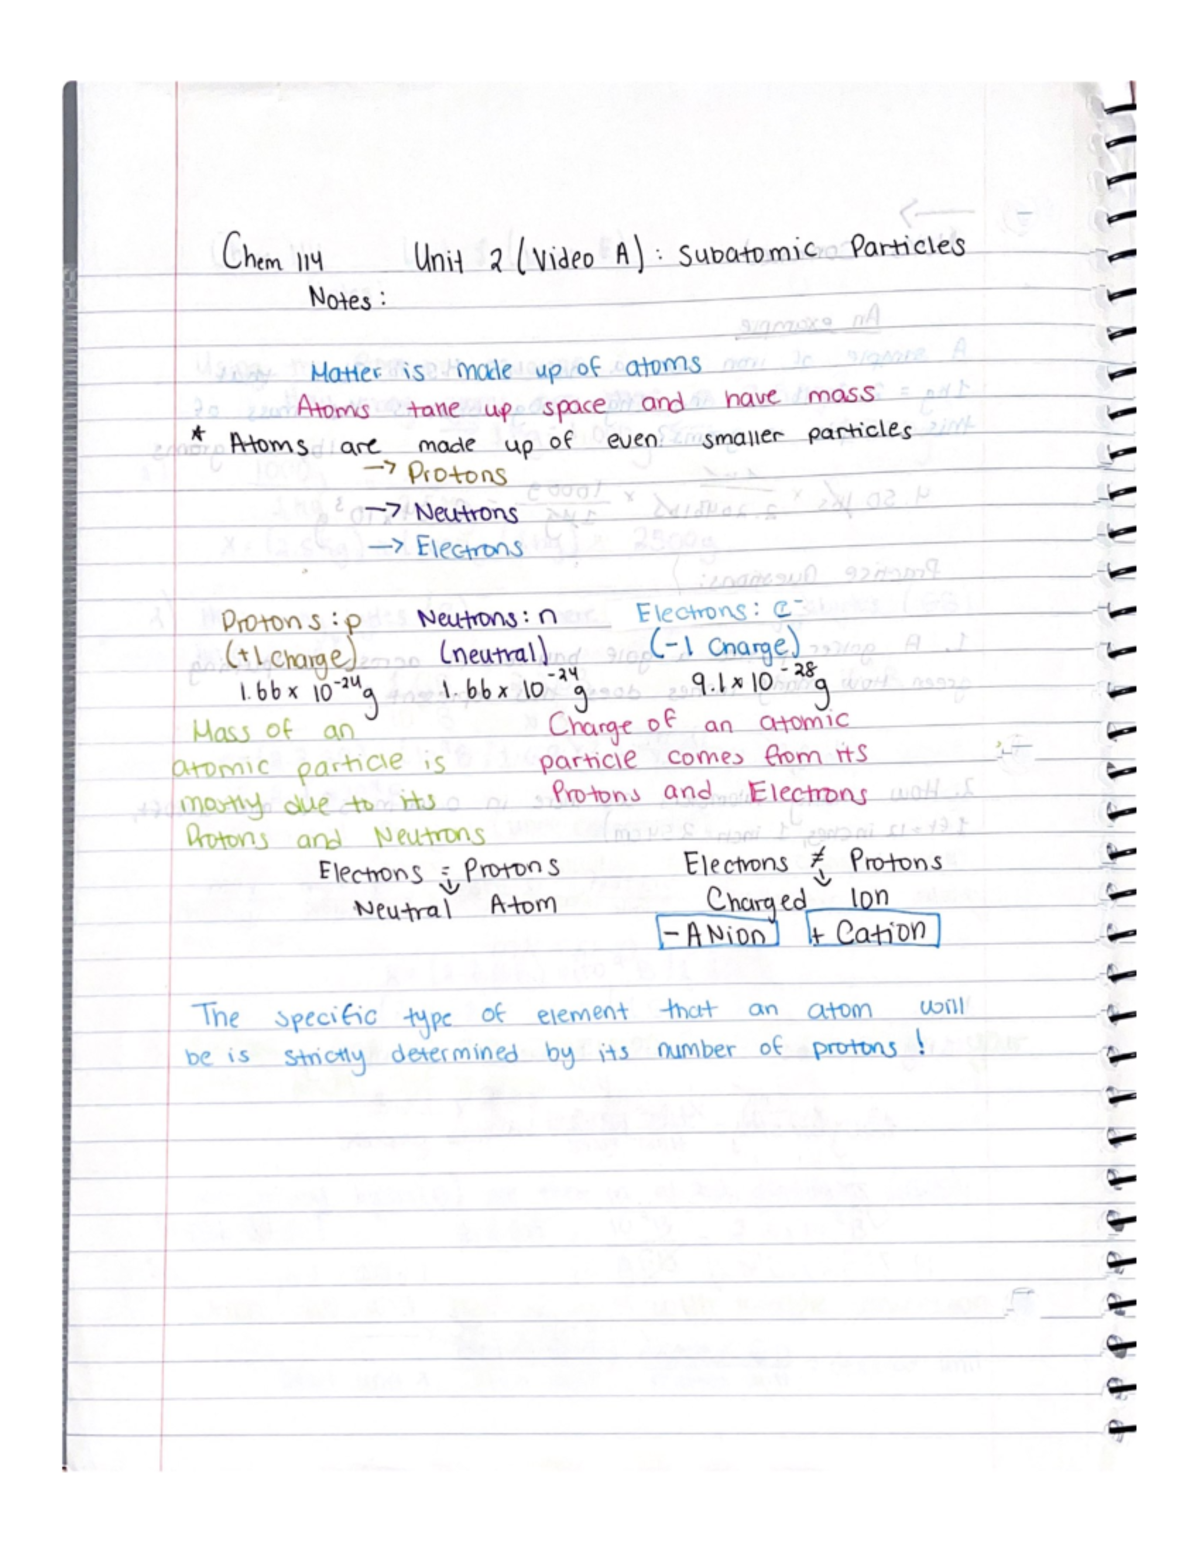 Chem 114 Unit 2 (Video A): Subatomic Particles
Notes:
Matter is made up of atoms
Atoms take up space and have mass
* Atoms are made up of even smaller particles
→ Protons
→ Neutrons
→ Electrons
Protons: p Neutrons: n Electrons: e⁻
(+1 charge) (neutral) (-1 charge)
1.66 x 10⁻²⁴g 1.66 x 10⁻²⁴g 9.1 x 10⁻²⁸g
Mass of an
atomic particle is
mostly due to its
Protons and Neutrons
Charge of an atomic
particle comes from its
Protons and Electrons
Electrons = Protons
↓
Neutral Atom
Electrons ≠ Protons
↓
Charged Ion
- ANion + Cation
The specific type of element that an atom will
be is strictly determined by its number of protons!